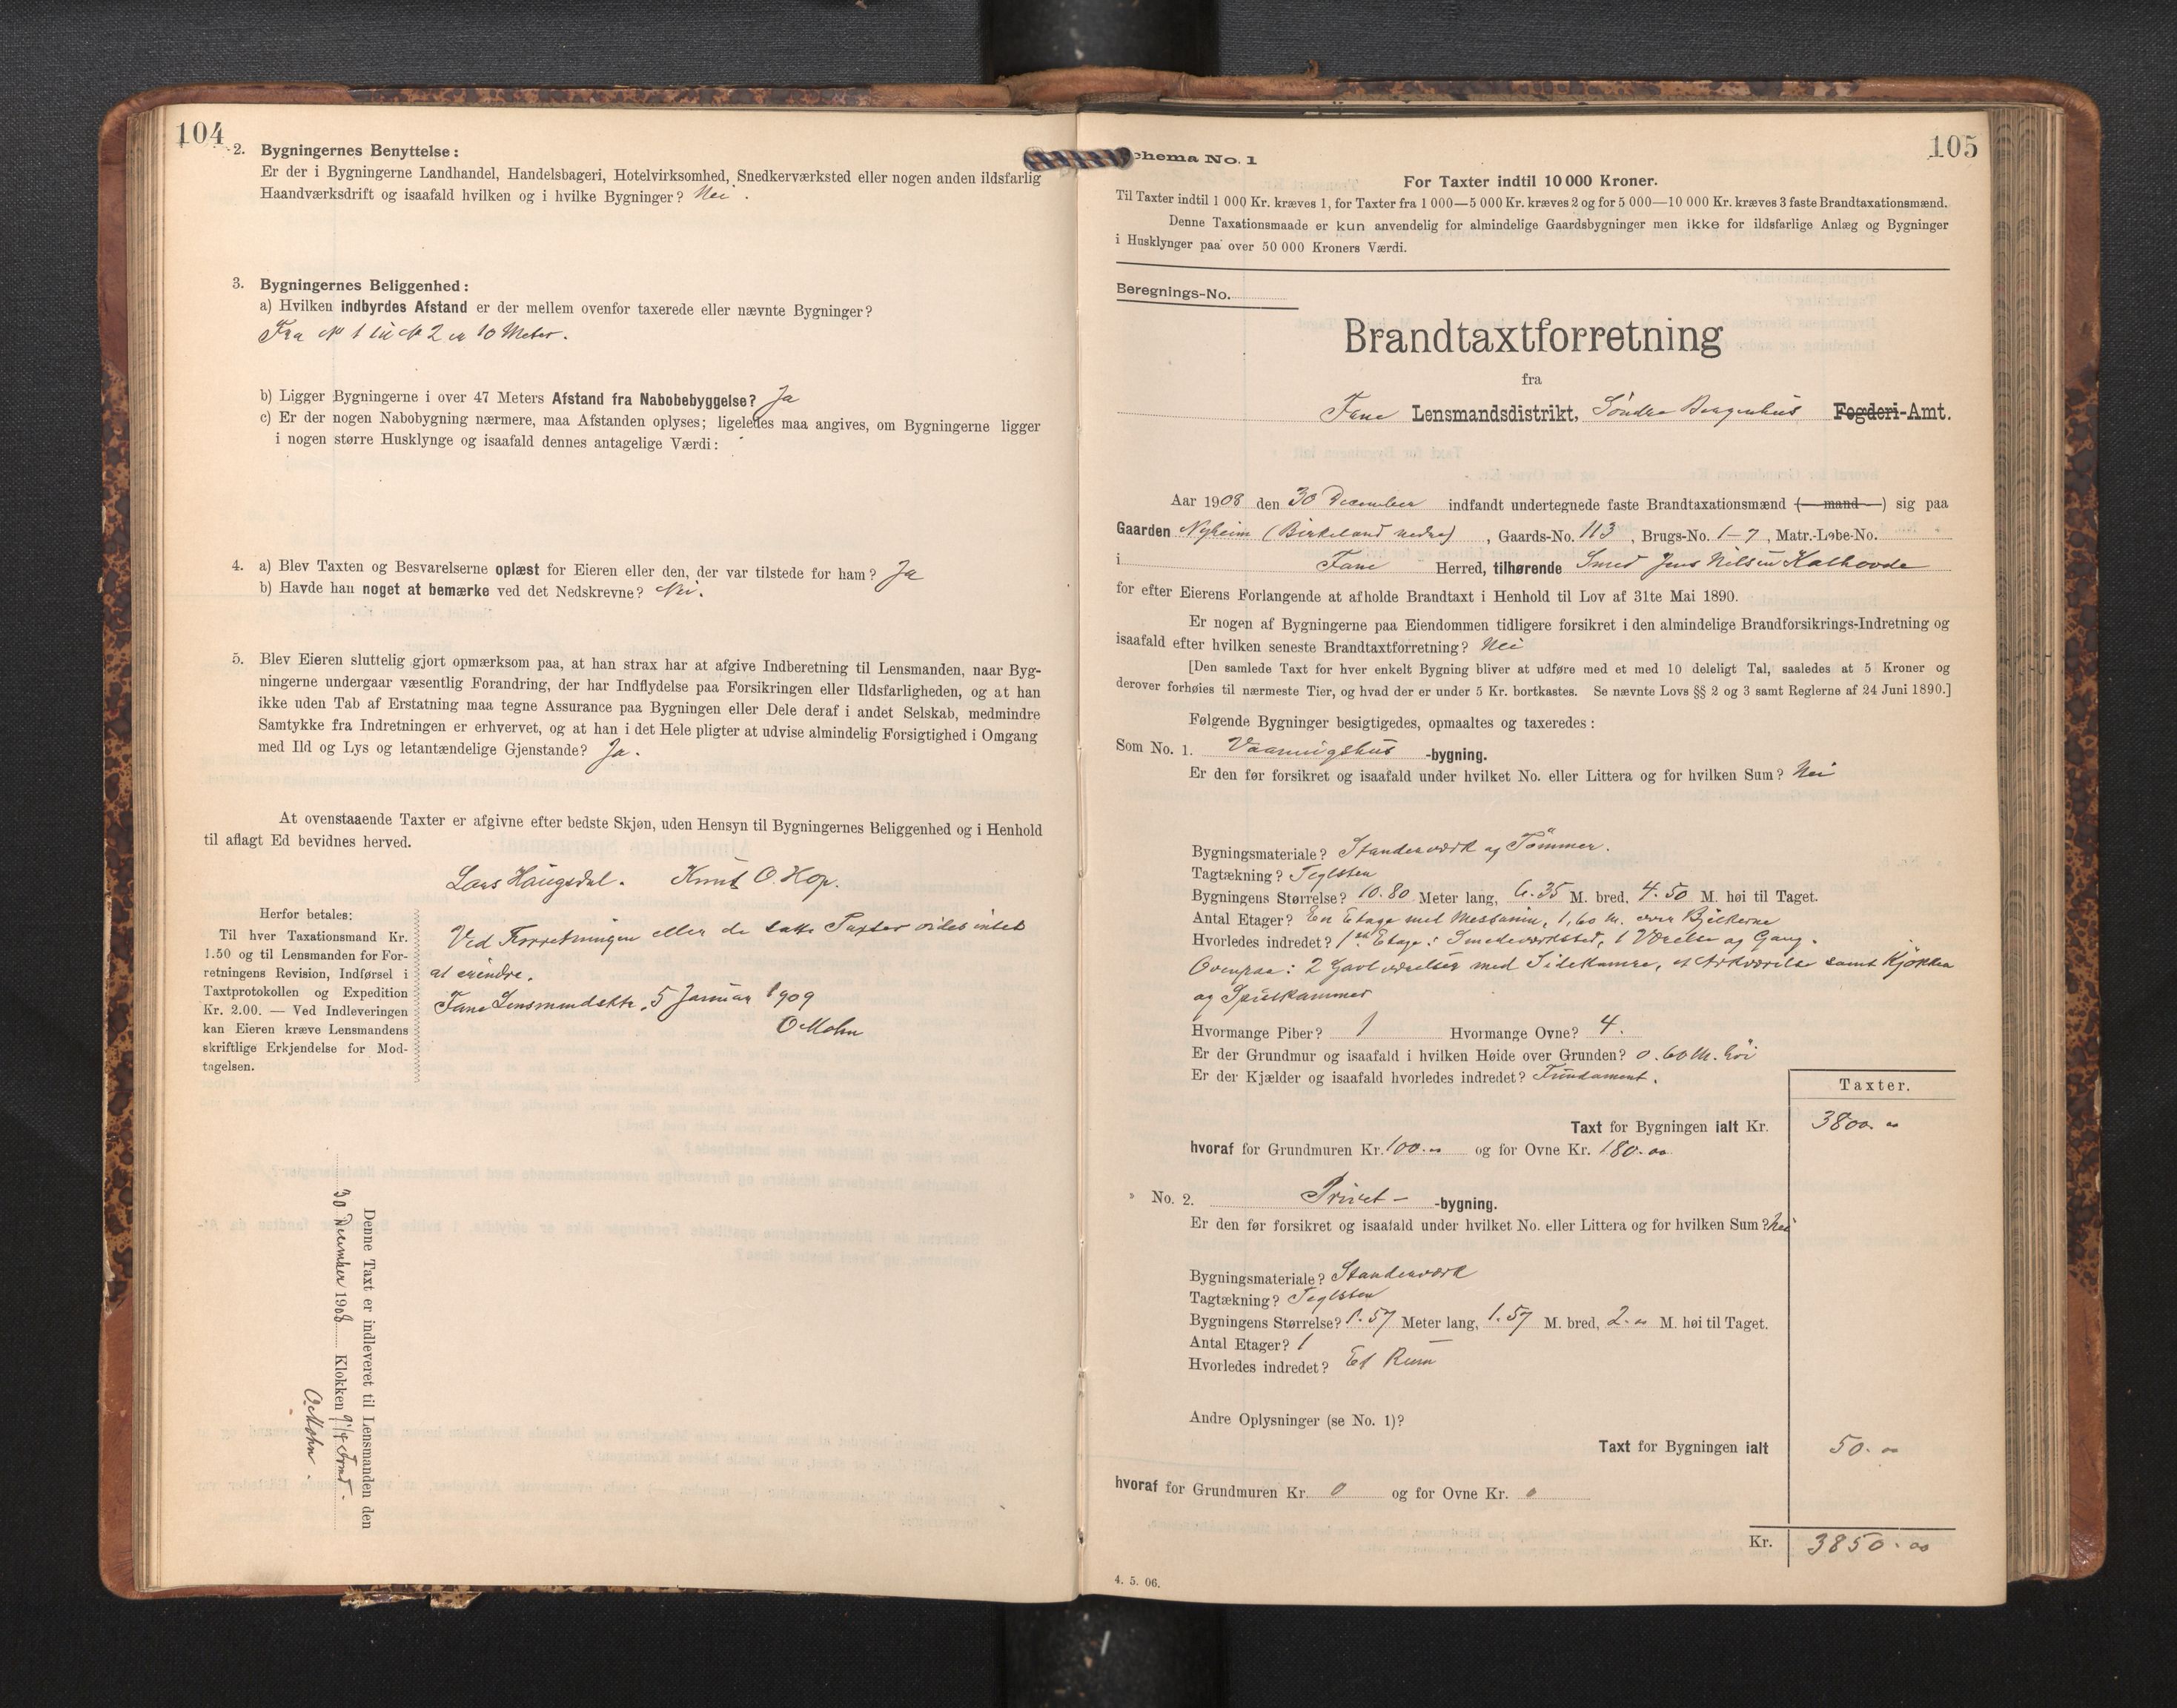 104
2. Bygningernes Benyttelse:
Er der i Bygningerne Landhandel, Handelsbageri, Hotelvirksomhed, Snedkerværksted eller nogen anden ildsfarlig
Haandværksdrift og isaafald hvilken og i hvilke Bygninger? Nei.
3. Bygningernes Beliggenhed:
a) Hvilken indbyrdes Afstand er der mellem ovenfor taxerede eller nævnte Bygninger?
Fra No 1 til No 2 er 10 Meter.
b) Ligger Bygningerne i over 47 Meters Afstand fra Nabobebyggelse? Ja
c) Er der nogen Nabobygning nærmere, maa Afstanden oplyses; ligeledes maa angives, om Bygningerne ligger
i nogen større Husklynge og isaafald dennes antagelige Værdi:
4. a) Blev Taxten og Besvarelserne oplæst for Eieren eller den, der var tilstede for ham? Ja
b) Havde han noget at bemærke ved det Nedskrevne? Nei.
5. Blev Eieren sluttelig gjort opmærksom paa, at han strax har at afgive Indberetning til Lensmanden, naar Byg-
ningerne undergaar væsentlig Forandring, der har Indflydelse paa Forsikringen eller Ildsfarligheden, og at han
ikke uden Tab af Erstatning maa tegne Assurance paa Bygningen eller Dele deraf i andet Selskab, medmindre
Samtykke fra Indretningen er erhvervet, og at han i det Hele pligter at udvise almindelig Forsigtighed i Omgang
med Ild og Lys og letantændelige Gjenstande? Ja.
At ovenstaaende Taxter er afgivne efter bedste Skjøn, uden Hensyn til Bygningernes Beliggenhed og i Henhold
til aflagt Ed bevidnes herved.
Lars Haugsdal. Knut O. Hop.
Herfor betales:
Til hver Taxationsmand Kr.
1.50 og til Lensmanden for For-
retningens Revision, Indførsel i
Taxtprotokollen og Expedition
Kr. 2.00. — Ved Indleveringen
kan Eieren kræve Lensmandens
skriftlige Erkjendelse for Mod-
tagelsen.
Ved Forretningen eller de satte Taxter vides intet
at erindre.
Fane Lensmandsktr. 5 Januar 1909
O Mohn
Denne Taxt er indleveret til Lensmanden den
30 December 1908 Klokken 9 1/4 Form.
O. Mohn.
105
Schema No. 1
For Taxter indtil 10 000 Kroner.
Til Taxter indtil 1 000 Kr. kræves 1, for Taxter fra 1 000—5 000 Kr. kræves 2 og for 5 000—10 000 Kr. kræves 3 faste Brandtaxationsmænd.
Denne Taxationsmaade er kun anvendelig for almindelige Gaardsbygninger men ikke for ildsfarlige Anlæg og Bygninger
i Husklynger paa over 50 000 Kroners Værdi.
Beregnings-No.
Brandtaxtforretning
fra
Fane Lensmandsdistrikt, Søndre Bergenhus Fogderi-Amt.
Aar 1908 den 30 December indfandt undertegnede faste Brandtaxationsmænd (— mand —) sig paa
Gaarden Nyheim (Birkeland nedre), Gaards-No. 113, Brugs-No. 1-7, Matr.-Løbe-No.
i Fane Herred, tilhørende Smed Jens Nilsen Kalhovde
for efter Eierens Forlangende at afholde Brandtaxt i Henhold til Lov af 31te Mai 1890.
Er nogen af Bygningerne paa Eiendommen tidligere forsikret i den almindelige Brandforsikrings-Indretning og
isaafald efter hvilken seneste Brandtaxtforretning? Nei
[Den samlede Taxt for hver enkelt Bygning bliver at udføre med et med 10 deleligt Tal, saaledes at 5 Kroner og
derover forhøies til nærmeste Tier, og hvad der er under 5 Kr. bortkastes. Se nævnte Lovs §§ 2 og 3 samt Reglerne af 24 Juni 1890.]
Følgende Bygninger besigtigedes, opmaaltes og taxeredes:
Som No. 1. Vaaningshus -bygning.
Er den før forsikret og isaafald under hvilket No. eller Littera og for hvilken Sum? Nei
Bygningsmateriale? Standerværk og Tømmer.
Tagtækning? Teglsten
Bygningens Størrelse? 10.80 Meter lang, 6.35 M. bred, 4.50 M. høi til Taget.
Antal Etager? En Etage med Messanin, 1,60 m. over Bjelkerne
Hvorledes indredet? 1ste Etage: Smedeværksted, 1 Værelse og Gang.
Ovenpaa: 2 Gavlværelser med Sidekamre, et Arkværelse samt Kjøkken
og Spiskammer
Hvormange Piber? 1 Hvormange Ovne? 4.
Er der Grundmur og isaafald i hvilken Høide over Grunden? 0.60 M. høi
Er der Kjælder og isaafald hvorledes indredet? Fundament.
Taxter.
Taxt for Bygningen ialt Kr. 3800.00
hvoraf for Grundmuren Kr. 100.00 og for Ovne Kr. 180.00
No. 2. Privet- -bygning.
Er den før forsikret og isaafald under hvilket No. eller Littera og for hvilken Sum? Nei
Bygningsmateriale? Standerværk
Tagtækning? Teglsten
Bygningens Størrelse? 1.57 Meter lang, 1.57 M. bred, 2.00 M. høi til Taget.
Antal Etager? 1
Hvorledes indredet? Et Rum
Andre Oplysninger (se No. 1)?
Taxt for Bygningen ialt 50.00
hvoraf for Grundmuren Kr. 0 og for Ovne Kr. 0
Kr. 3850.00
4. 5. 06.